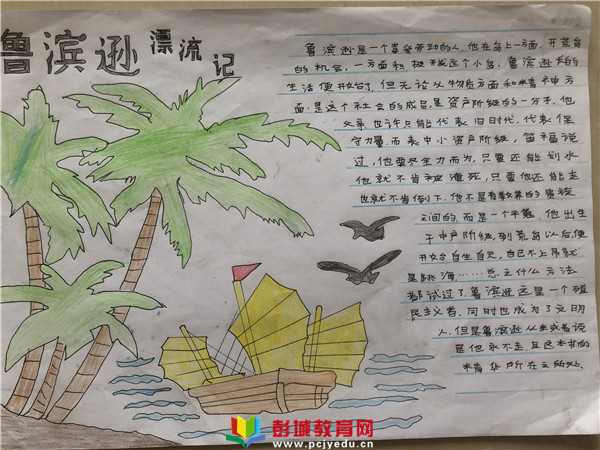 鲁滨逊漂流记
鲁滨逊是一个喜爱劳动的人,他在岛上一方面,开荒岛
的机会,一方面积极开拓这个小岛。鲁滨逊式的
生活便开始了,但无论从物质方面和精神方
面,是这个社会的成员,是资产阶级的一分子,他
父亲也许只能代表旧时代,代表保
守力量,而表中小资产阶级,笛福说
过,他要尽全力而为,只要还能划水
他就不肯被淹死,只要他还能走
也就不肯倒下,他不是有教养的贵族
之间的,而是一个平,他出生
于中产阶级,到荒岛以后,便
开始自生自灭,自己不上吊就
是跳海……总之什么方法
都试过了,鲁滨逊这是一个殖
民主义者,同时也成为了文明
人,但是鲁滨逊从来或者说
是他永不走,且这本书的
精华所在之所处。
彭城教育网
www.pcjyedu.cn